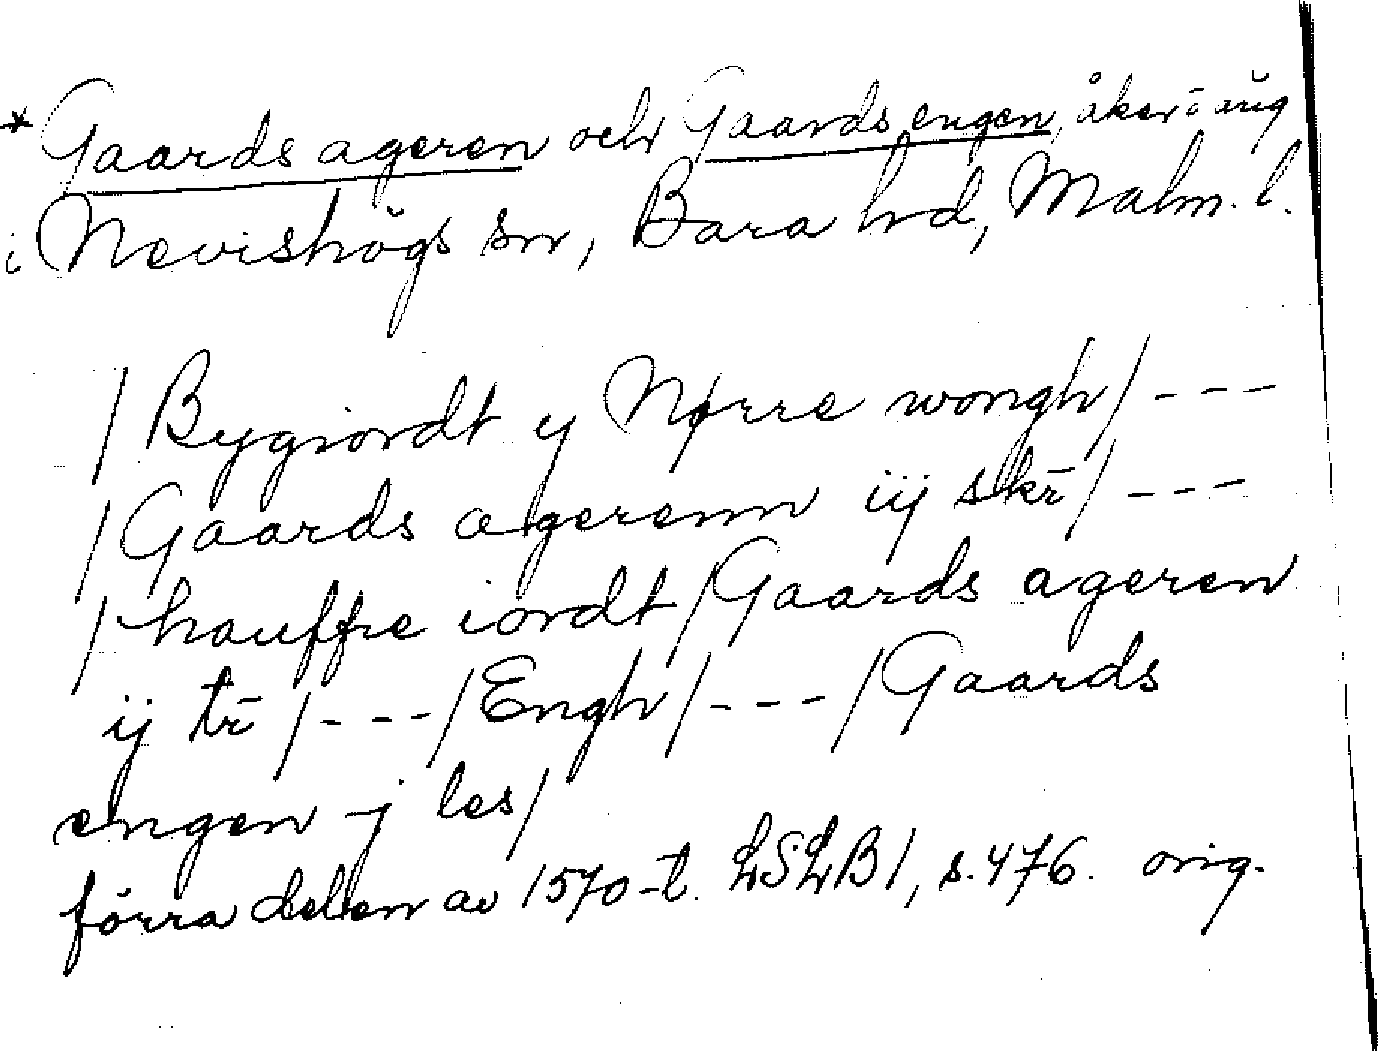 * Gaards ageren och Gaards engen, åker o äng
i Nevishögs sn, Bara hd, Malm. l.
/ Bygiordt y Nørre wongh / ---
/ Gaards agerenn iij skr̄ / ---
/ houffre iordt / Gaards ageren
ij tr̄ / --- / Engh / --- / Gaards
engen j les /
förra delen av 1570-t. LSLB 1, s. 476. orig.